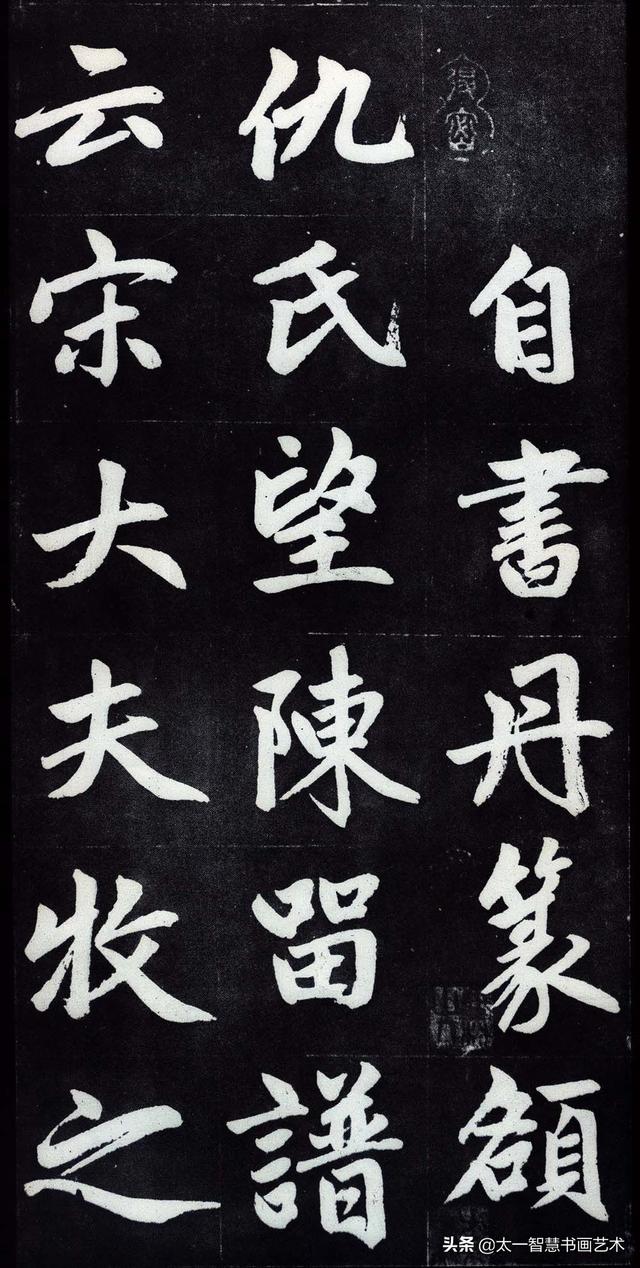 自書丹篆額
仇氏望陳留譜
云宋大夫牧之
头条 @太一智慧书画艺术